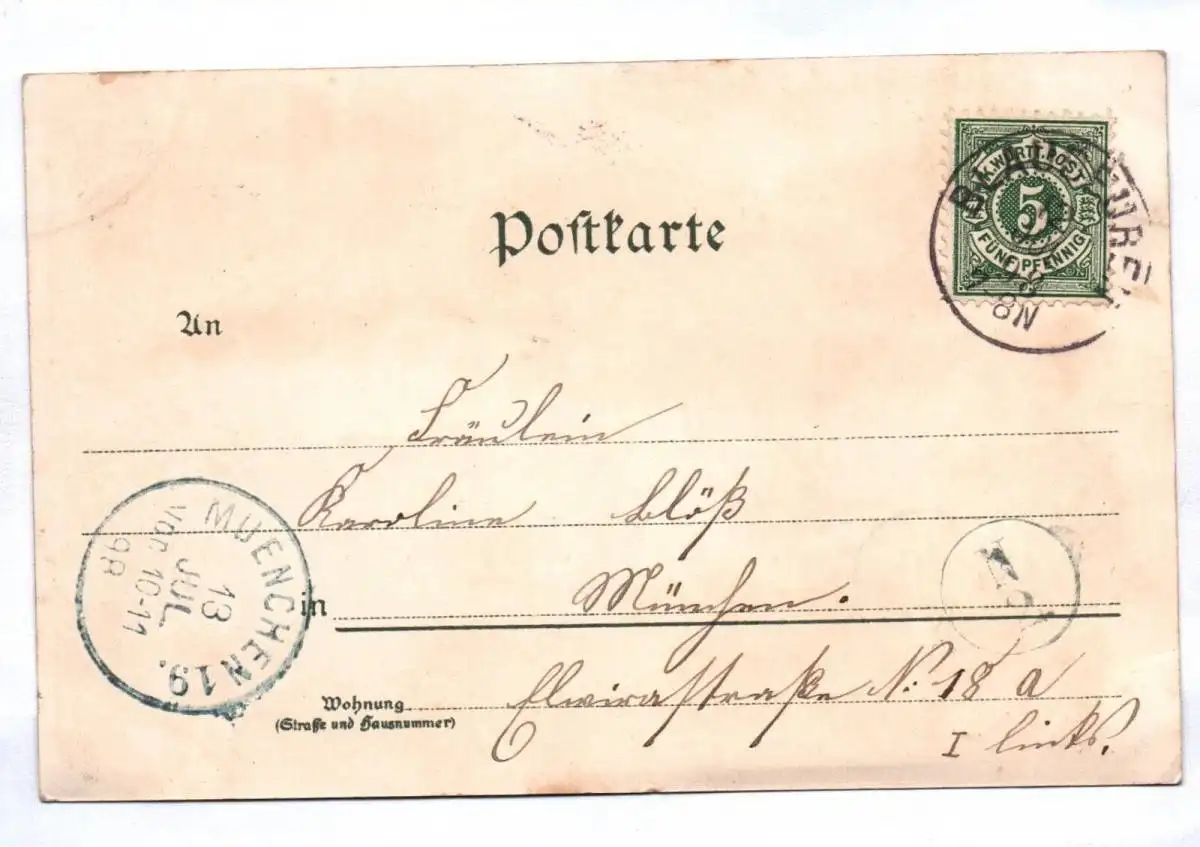 Postkarte
K. WÜRTT. POST
5
FÜNF PFENNIG
BLAUBEUREN
7-8N
An
Fräulein
Karoline Blöß
in München.
Wohnung
(Straße und Hausnummer)
Elvirastraße N: 18 a
I links.
MUENCHEN 19.
13
JUL
Vor. 10-11
98